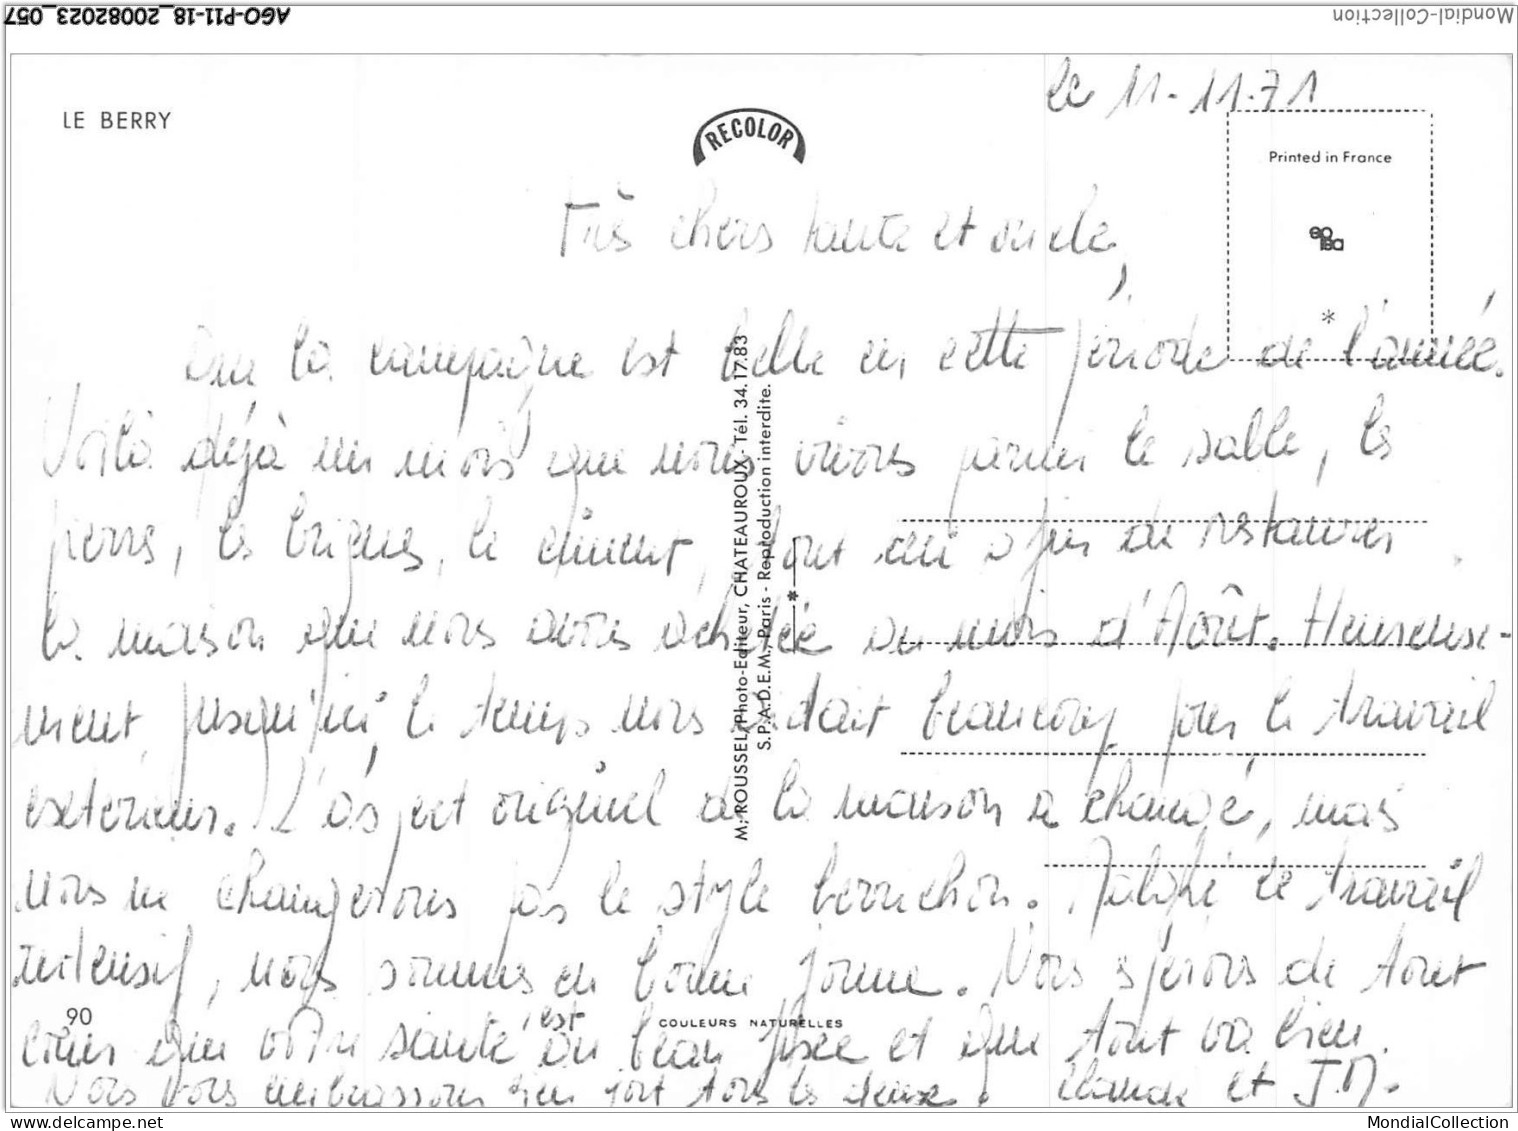 AGO-P11-18_20082023_057
Mondial-Collection
LE BERRY
RECOLOR
le 11-11-71
Printed in France
Très chers tante et oncle,
Que la campagne est belle en cette période de l'année.
Voilà déjà un mois que nous vivons parmi le sable, les
pierres, les briques, le ciment, tout ceci afin de restaurer
la maison que nous avons achetée au mois d'Août. Heureuse-
ment, jusqu'ici, le temps nous aidait beaucoup pour le travail
extérieur. L'aspect originel de la maison a changé, mais
nous ne changerons pas le style berrichon. Malgré le travail
intensif, nous sommes en bonne forme. Nous espérons de tout
cœur que votre santé est au beau fixe et que tout va bien.
Nous vous embrassons bien fort tous les deux. Claude et J.M.
M. ROUSSEL, Photo-Editeur, CHATEAUROUX - Tél. 34.17.83
S.P.A.D.E.M. Paris - Reproduction interdite.
90
COULEURS NATURELLES
MondialCollection